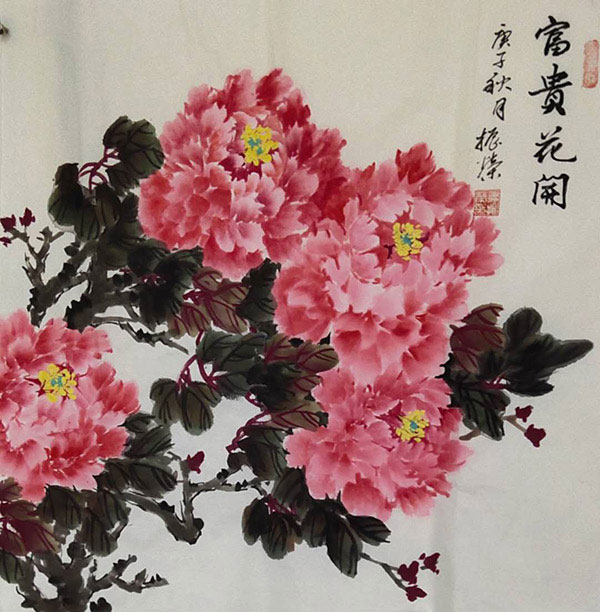 富貴花開
庚子秋月振榮